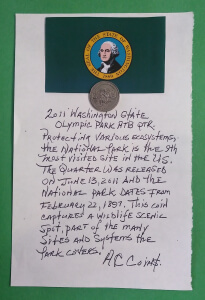 2011 Washington State
Olympic Park ATB QTR.
Protecting various ecosystems,
the National Park is the 5th
most visited site in the U.S.
The Quarter was released
on June 13, 2011 and the
National Park dates from
February 22, 1897. This coin
captured a wildlife scenic
spot, part of the many
sites and systems the
park covers.
AC Coins.